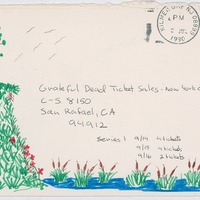 KILMER GMF, NJ 08899
PM
1990
Grateful Dead Ticket Sales - New York
C-S 8150
San Rafael, CA
94912
Series 1 9/14 4 tickets
9/15 4 tickets
9/16 2 tickets